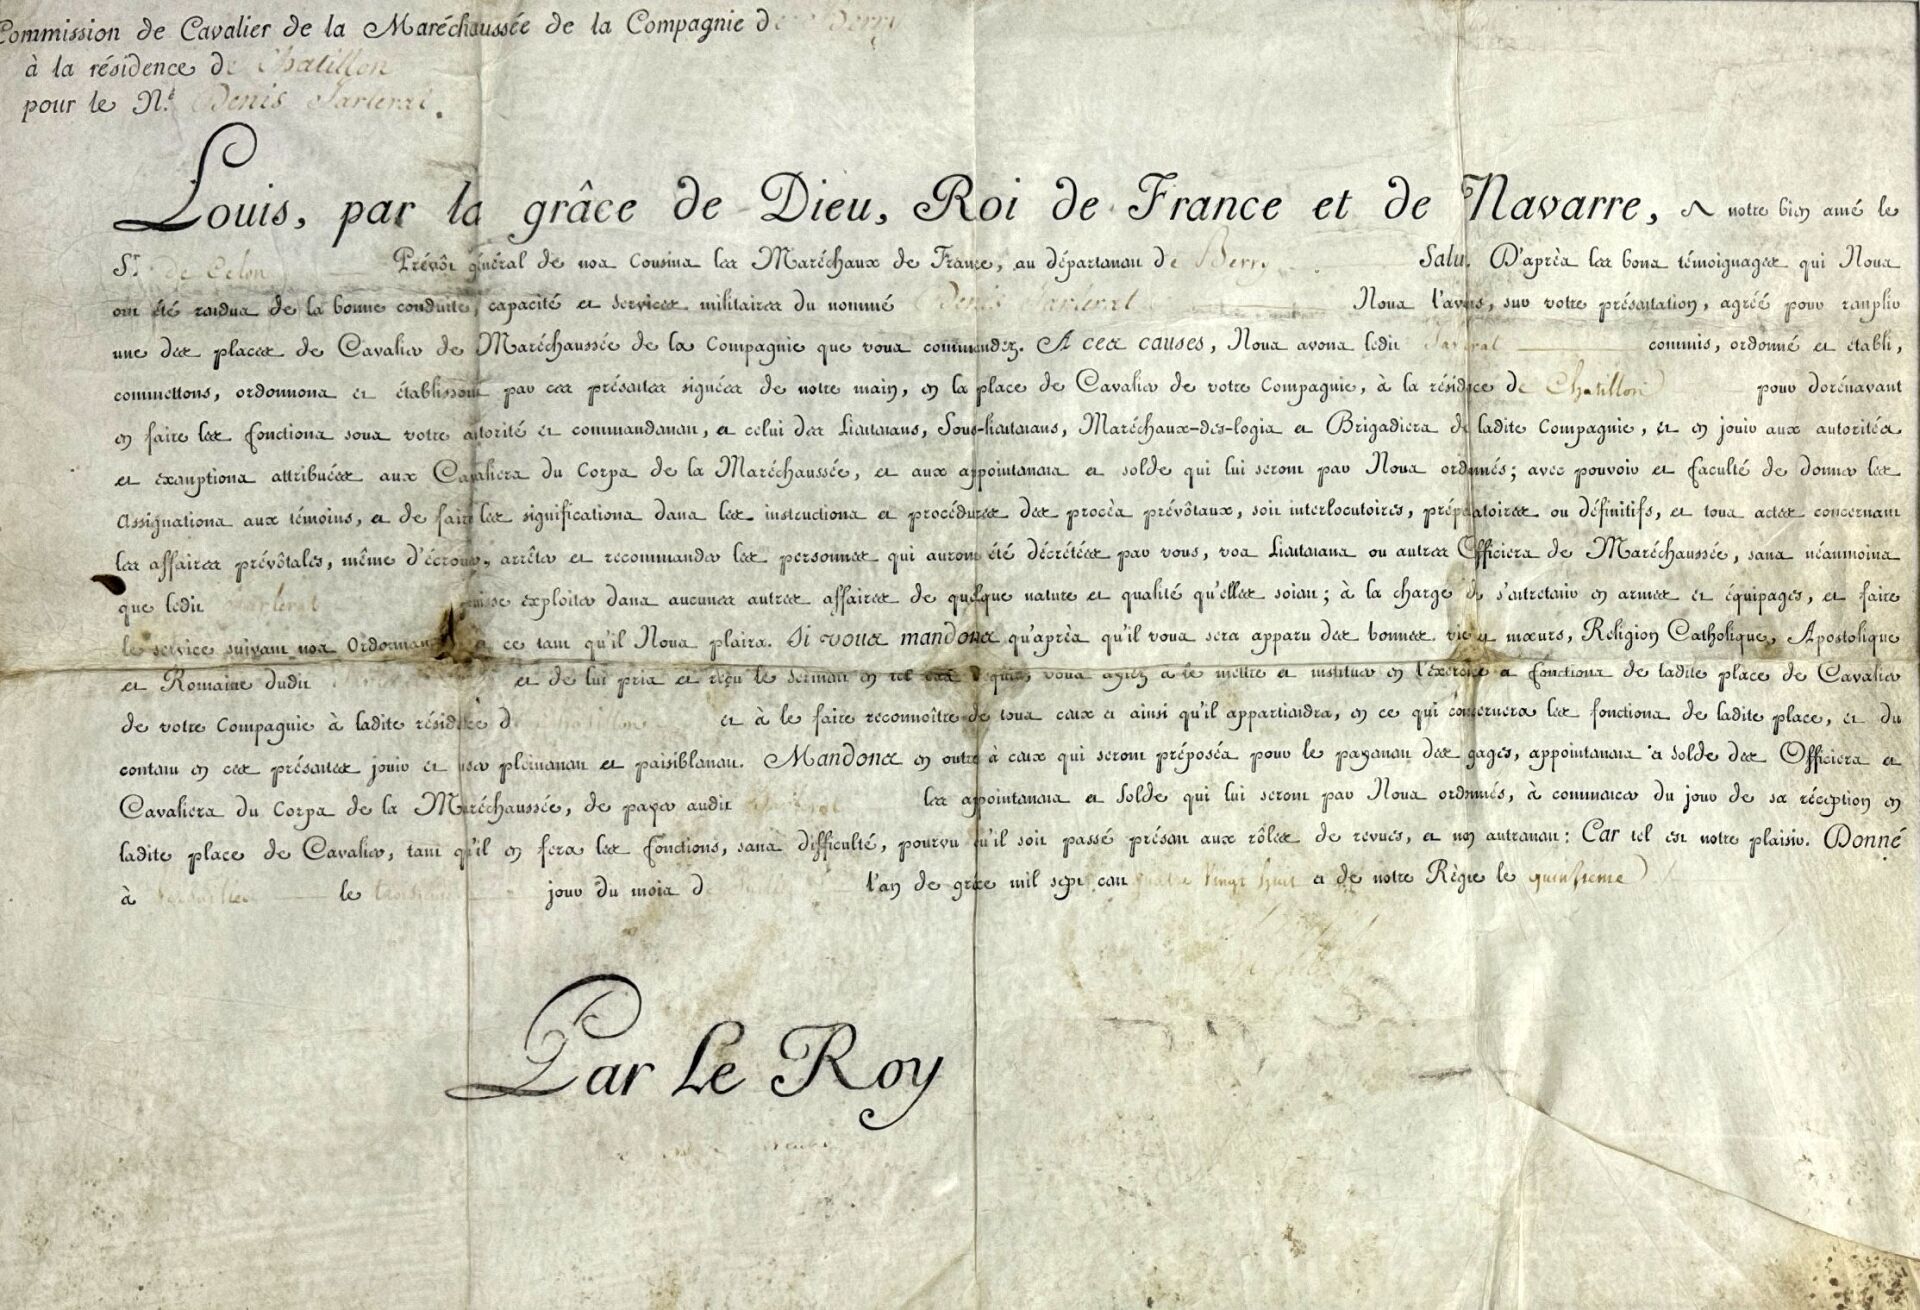 Commission de Cavalier de la Maréchaussée de la Compagnie de Berry
à la résidence de Chatillon
pour le N.é Denis
Louis, par la grâce de Dieu, Roi de France et de Navarre, A notre bien amé le
S.r de Prévôt général de nos Cousins les Maréchaux de France, au département de Berry Salut. D'après les bons témoignages qui Nous
ont été rendus de la bonne conduite, capacité et services militaires du nommé Denis Nous l'avons, sur votre présentation, agréé pour remplir
une des places de Cavalier de Maréchaussée de la Compagnie que vous commandez. A ces causes, Nous avons ledit commis, ordonné et établi,
commettons, ordonnons et établissons par ces présentes signées de notre main, en la place de Cavalier de votre Compagnie, à la résidence de Chatillon pour dorénavant
en faire les fonctions sous votre autorité et commandement, et celui des Lieutenans, Sous-lieutenans, Maréchaux-des-logis et Brigadiers de ladite Compagnie, et en jouir aux autorités
et exemptions attribuées aux Cavaliers du Corps de la Maréchaussée, et aux appointemens et solde qui lui seront par Nous ordonnés; avec pouvoir et faculté de donner les
Assignations aux témoins, et de faire les significations dans les instructions et procédures des procès prévôtaux, soit interlocutoires, préparatoires ou définitifs, et tous actes concernant
les affaires prévôtales, même d'écrouer, arrêter et recommander les personnes qui auront été décrétées par vous, vos Lieutenans ou autres Officiers de Maréchaussée, sans néanmoins
que ledit puisse exploiter dans aucunes autres affaires de quelque nature et qualité qu'elles soient; à la charge de s'entretenir en armes et équipages, et faire
le service suivant nos Ordonnances, ce tant qu'il Nous plaira. Si vous mandons qu'après qu'il vous sera apparu des bonnes vie et mœurs, Religion Catholique, Apostolique
et Romaine dudit et de lui pris et reçu le serment en tel cas requis, vous ayiez à le mettre et instituer en l'exercice et fonctions de ladite place de Cavalier
de votre Compagnie à ladite résidence de Chatillon et à le faire reconnoître de tous ceux et ainsi qu'il appartiendra, en ce qui concernera les fonctions de ladite place, et du
contenu en ces présentes jouir et user pleinement et paisiblement. Mandons en outre à ceux qui seront préposés pour le payement des gages, appointemens et solde des Officiers et
Cavaliers du Corps de la Maréchaussée, de payer audit les appointemens et Solde qui lui seront par Nous ordonnés, à commencer du jour de sa réception en
ladite place de Cavalier, tant qu'il en fera les fonctions, sans difficulté, pourvu qu'il soit passé présent aux rôles de revues, et non autrement: Car tel est notre plaisir. Donné
à Versailles le jour du mois d l'an de grâce mil sept cent quatre vingt huit et de notre Règne le quinzieme
Par Le Roy